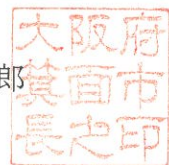 郎
大阪府
箕面市
長之印